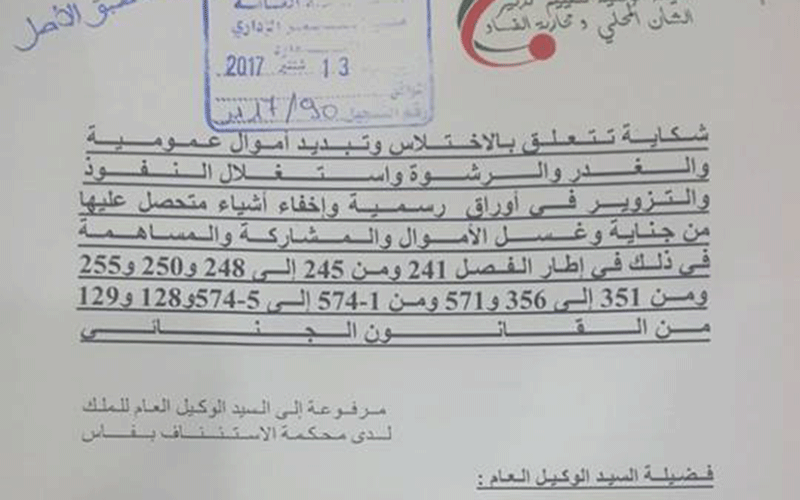 الأصل
الشأن المحلي و محاربة الفساد
13 شتنبر 2017
17/90
شكاية تتعلق بالاختلاس وتبديد أموال عمومية
والغدر والرشوة واستغلال النفوذ
والتزوير في أوراق رسمية وإخفاء أشياء متحصل عليها
من جناية وغسل الأموال والمشاركة والمساهمة
في ذلك في إطار الفصل 241 ومن 245 إلى 248 و250 و255
ومن 351 إلى 356 و571 ومن 1-574 إلى 5-574و128 و129
من القانون الجنائي
مرفوعة إلى السيد الوكيل العام للملك
لدى محكمة الاستئناف بفاس
فضيلة السيد الوكيل العام :